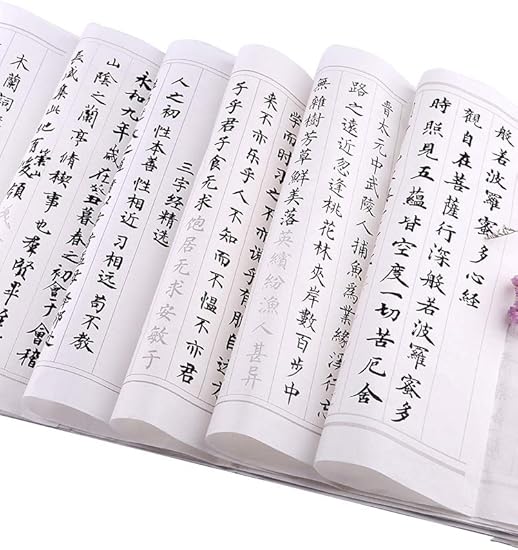 般若波羅蜜多心經
觀自在菩薩行深般若波羅蜜多
時照見五蘊皆空度一切苦厄舍
晉太元中武陵人捕魚為業緣溪行忘
路之遠近忽逢桃花林夾岸數百步中
無雜樹芳草鮮美落英繽紛漁人甚異
学而时习之不亦说乎有朋自远方
来不亦乐乎人不知而不愠不亦君
子乎君子食无求饱居无求安敏于
三字经精选
人之初性本善性相近习相远苟不教
永和九年歲在癸丑暮春之初會于會稽
山陰之蘭亭脩稧事也羣賢畢
長咸集此地有崇山峻領
木蘭詞